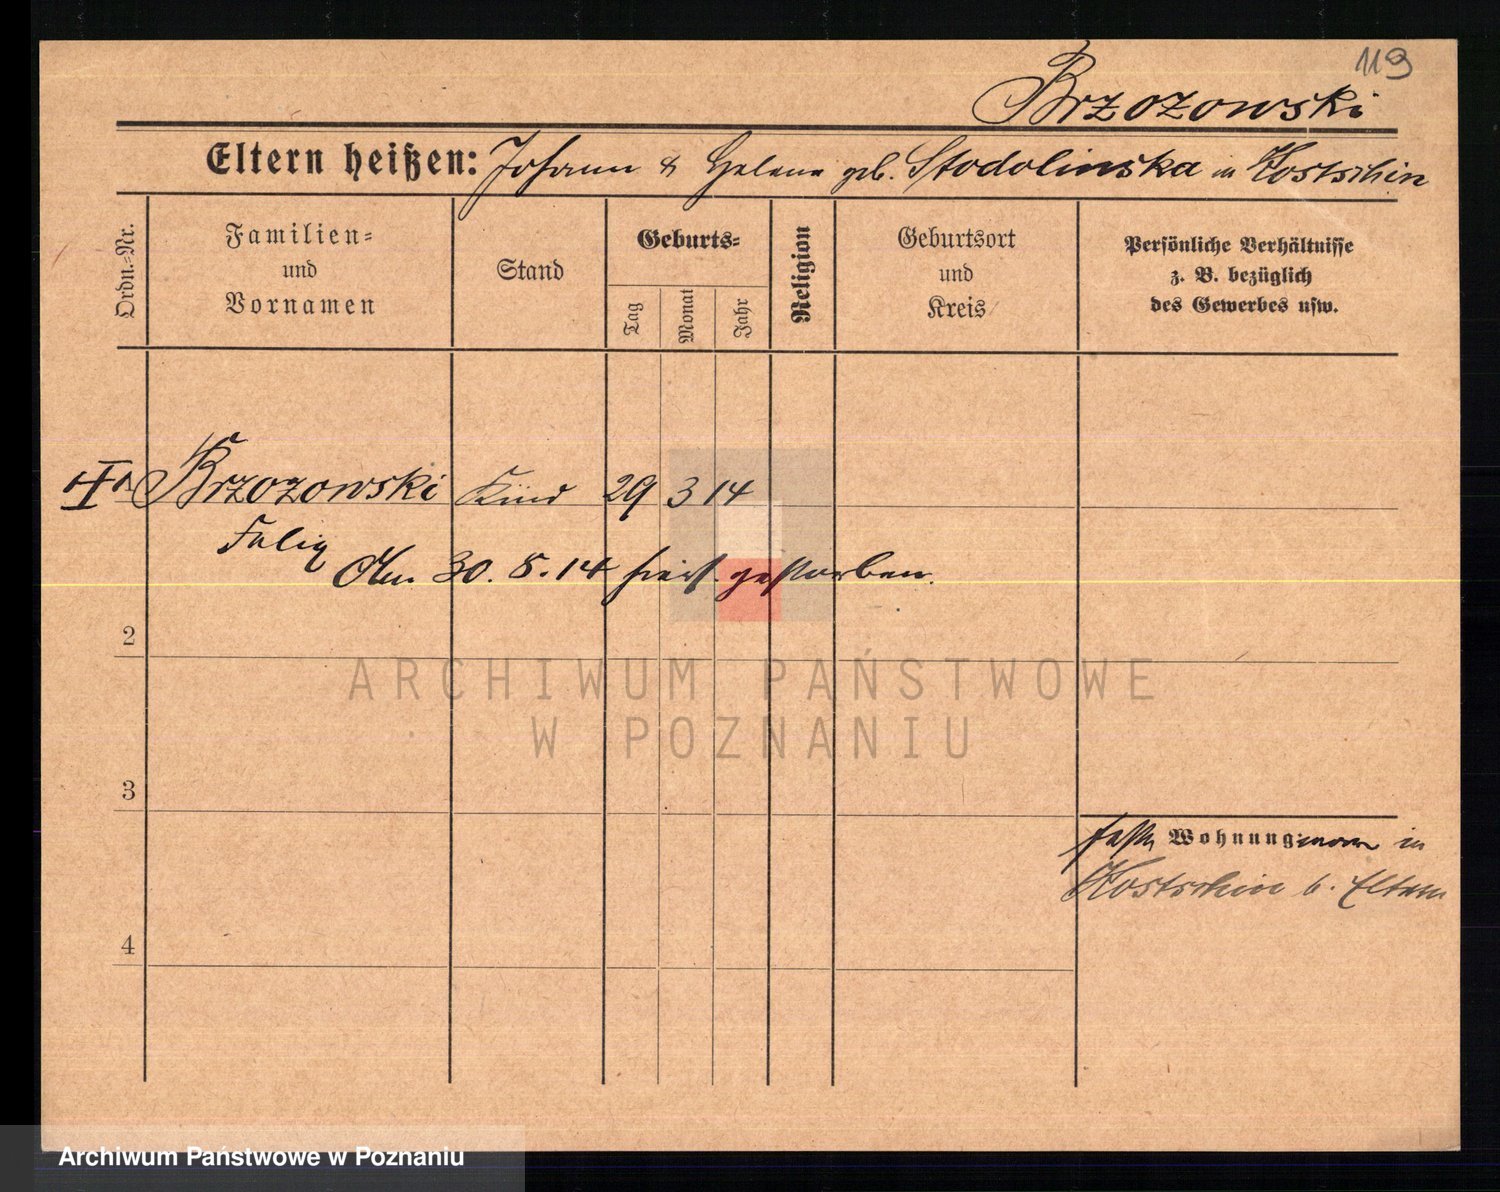 119
Brzozowski
Eltern heißen: Johann & Helene geb. Stodolinska in Kostschin
Ordn.-Nr.
Familien-
und
Vornamen
Stand
Geburts-
Tag
Monat
Jahr
Religion
Geburtsort
und
Kreis
Persönliche Verhältnisse
z. B. bezüglich
des Gewerbes usw.
Brzozowski Kind 29 3 14
Felix
Am 30. 8. 14 hier gestorben.
2
ARCHIWUM PAŃSTWOWE
W POZNANIU
3
feste Wohnung: war in
Kostschin b. Eltern
4
Archiwum Państwowe w Poznaniu